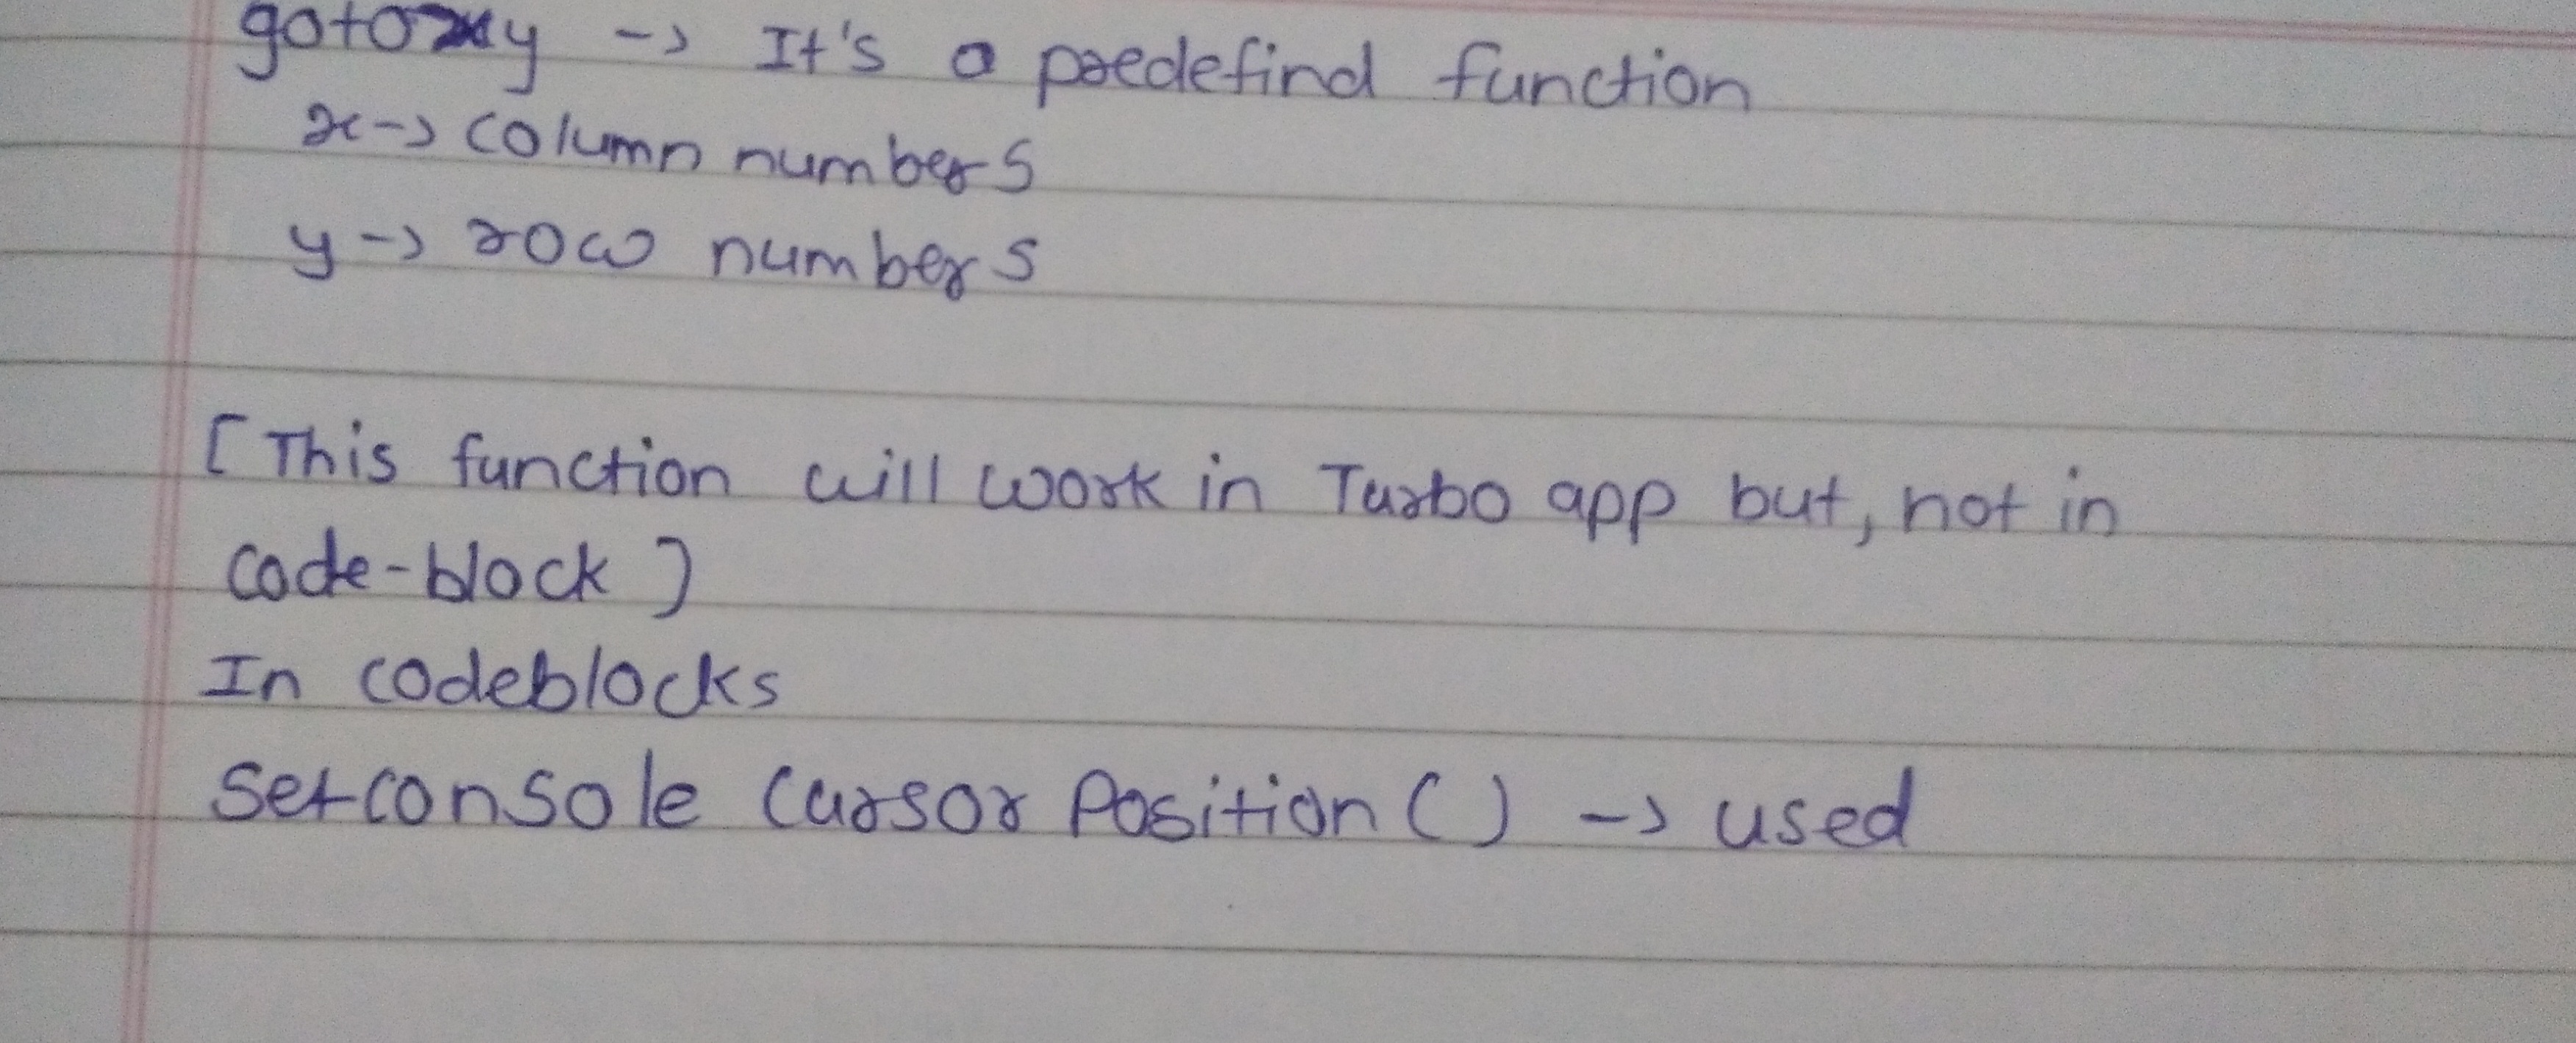 gotoxy -> It's a predefind function
x -> column numbers
y -> row numbers
[This function will work in Turbo app but, not in
code-block]
In codeblocks
Setconsole Cursor Position() -> used